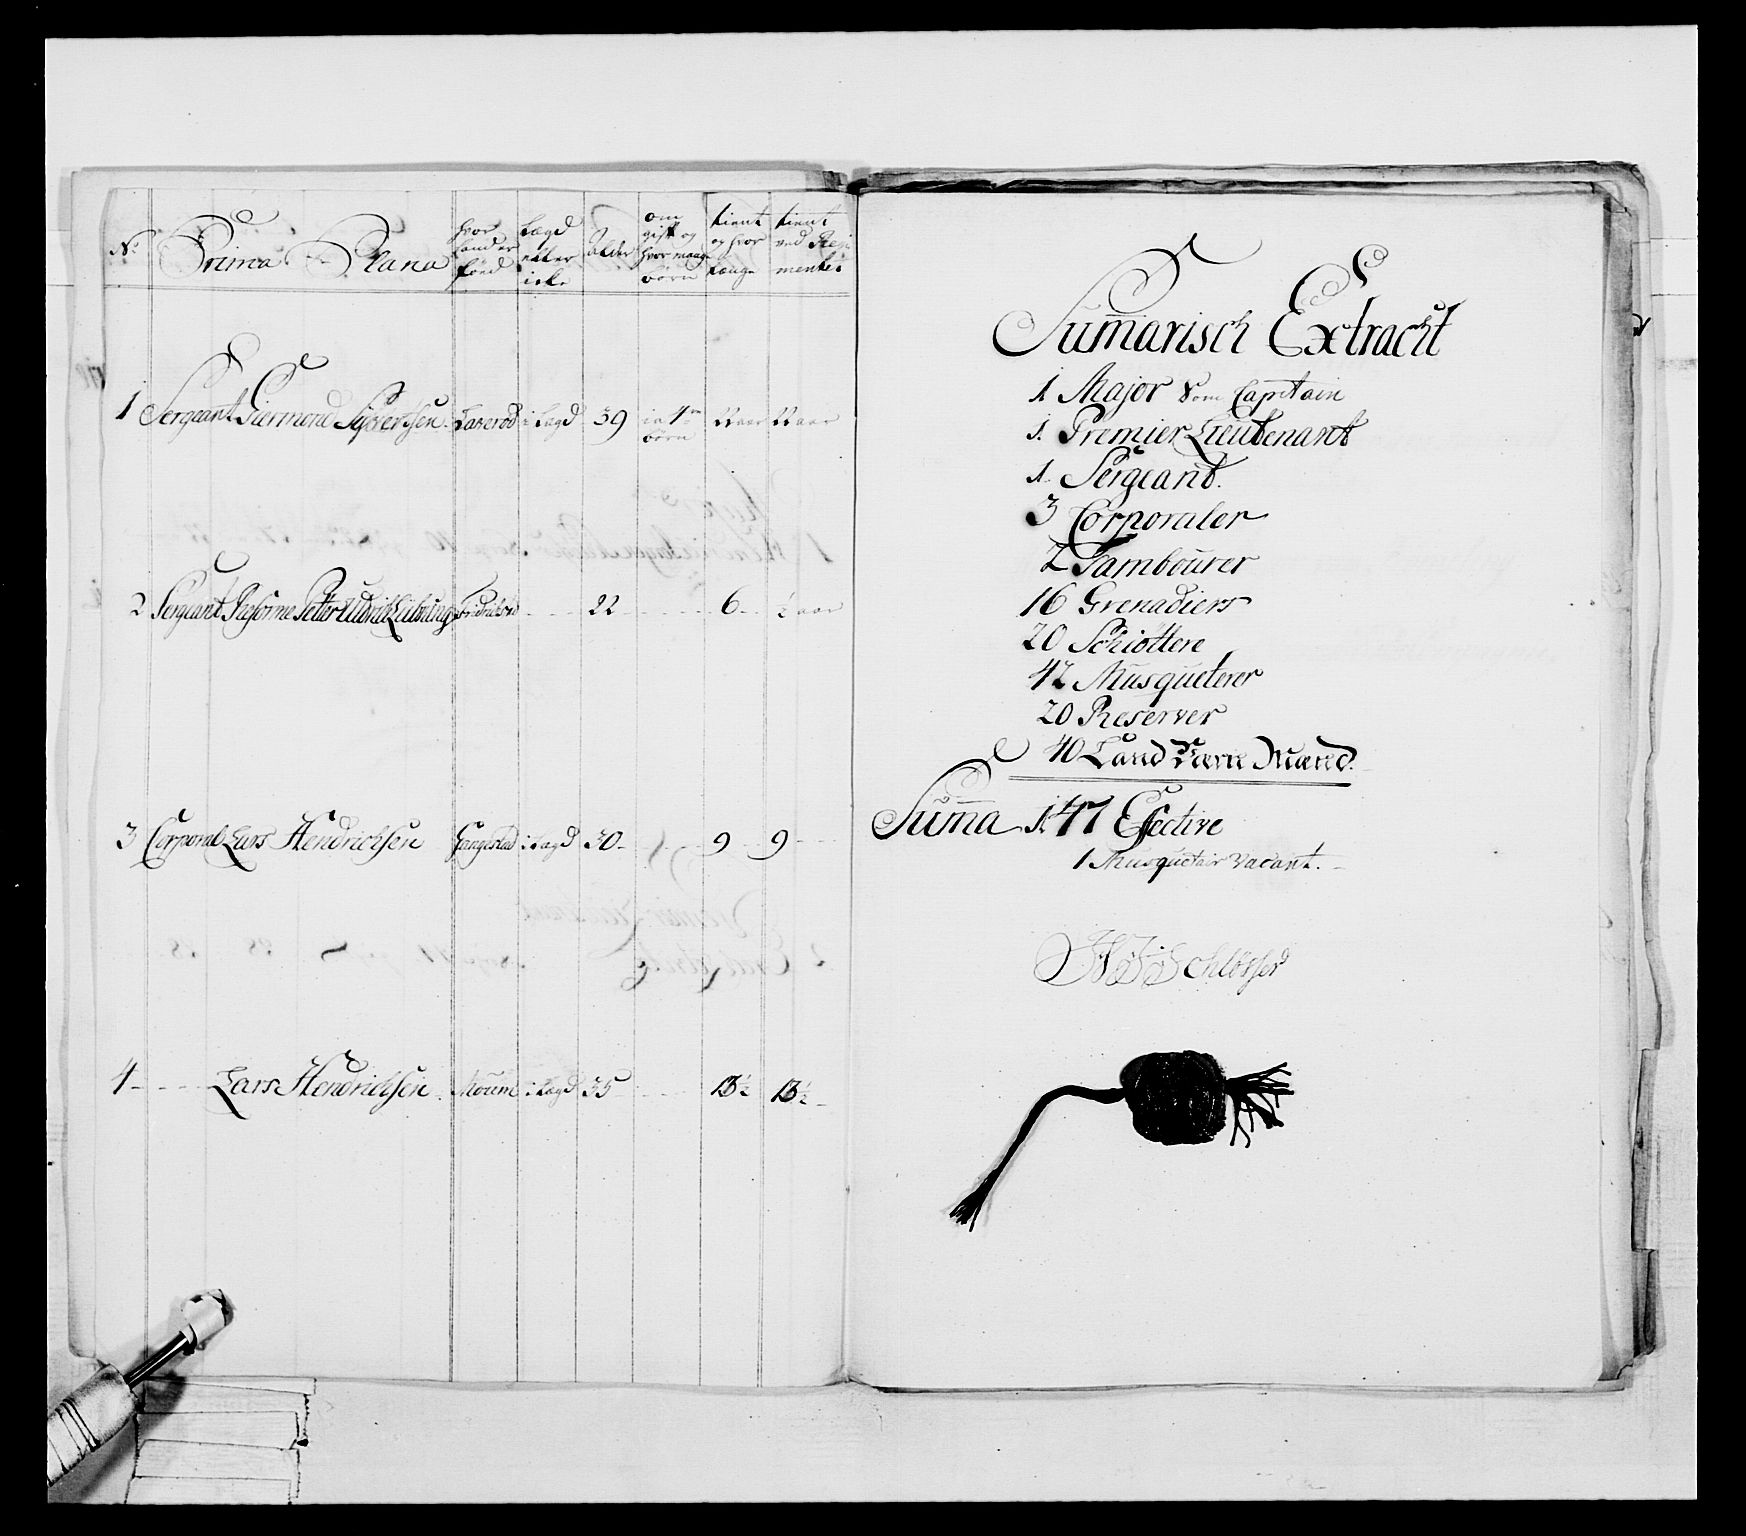 No
Prima Plana
hvor hand er fönd
Lægd eller icke
Alder
om gift og hvor mange börn
tient og hvor lange
tient ved Regimentet
1 Sergeant Giermond Syversen i Lægd 39 ja 4 börn 22 aar 22 aar
2 Sergeant Reforme Peter 22 6 ½ aar
3 Corporal Lars Hendrichsen i Lægd 30 9 9
4 Lars Hendrichsen Moum i Lægd 35 13½ 13½
Sumarisch Extracht
1 Major som Capitain
1. Premier Lieutenant
1. Sergeant.
3 Corporaler
2 Tambourer
16 Grenadiers
20 Schiöttere
42 Musqueterer
20 Reserver
40 Land Værn Mænd.
Suma 147 Effective
1 Musquetair vacant.
Schlösser